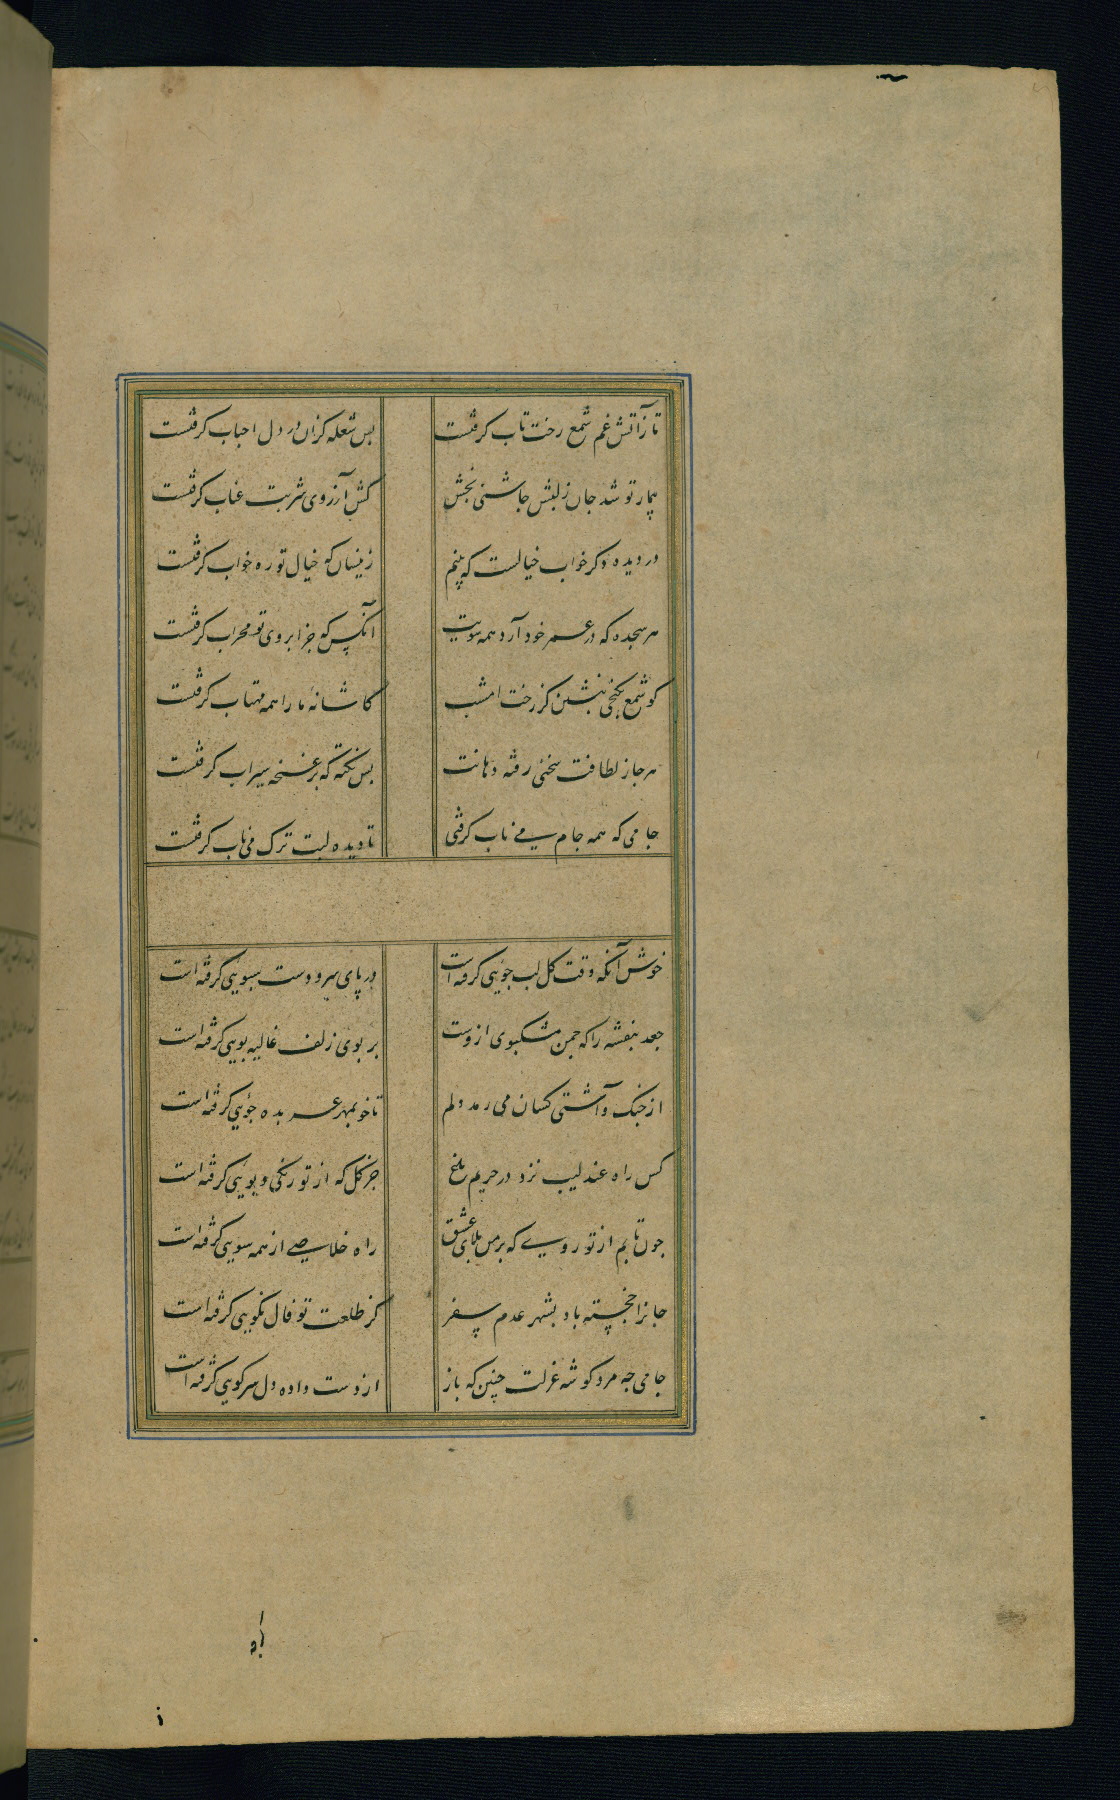 تا زآتش غم شمع رخت تاب گرفتست بس شعله کزان در دل احباب گرفتست
بیمار تو شد جان ز لبش چاشنی بخش کش آرزوی شربت عناب گرفتست
در دیده دگر خواب خیالست که بینم زینسان که خیال تو ره خواب گرفتست
هر سجده که در عمر خود آرد همه سویت آنکس که جز ابروی تو محراب گرفتست
کو شمع بکنجی بنشین کز رخت امشب کاشانهٔ ما را همه مهتاب گرفتست
هرجا ز لطافت سخنی رفته دهانت بس نکته که بر غنچه سیراب گرفتست
جامی که همه جام می ناب گرفتی تا دیده لبت ترک می ناب گرفتست
خوش آنکه وقت گل لب جویی گرفته است در پای سرو دست سبویی گرفته است
جعد بنفشه را که چمن مشکبوی ازوست بر بوی زلف غالیه بویی گرفته است
از جنگ و آشتی کسان می رمد دلم تا خو بمهر عربده جویی گرفته است
کس راه عندلیب نزد در حریم باغ جز گل که از تو رنگی و بویی گرفته است
چون تابم از تو روی که بر من بلای عشق راه خلاصی از همه سویی گرفته است
جانرا خجسته باد بشهر عدم سفر کز طلعت تو فال نکویی گرفته است
جامی چه مرد گوشه عزلت چنین که باز از دست داده دل سر کویی گرفته است